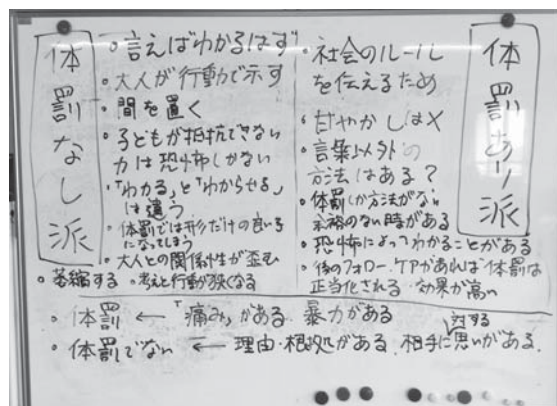 体罰なし派
・言えばわかるはず
・大人が行動で示す
・間を置く
・子どもが抵抗できない
力は恐怖しかない
・「わかる」と「わからせる」
は違う
・体罰では形だけの良い子
になってしまう
・大人との関係性が歪む
・萎縮する ・考えと行動が狭くなる
体罰あり派
・社会のルール
を伝えるため
・甘やかしは×
・言葉以外の
方法はある?
・体罰しか方法がない
余裕のない時がある
・恐怖によってわかることがある
・後のフォロー・ケアがあれば体罰は
正当化される・効果が高い
・体罰 ← 「痛み」がある 暴力がある
・体罰でない ← 理由・根拠がある、相手に対する思いがある。